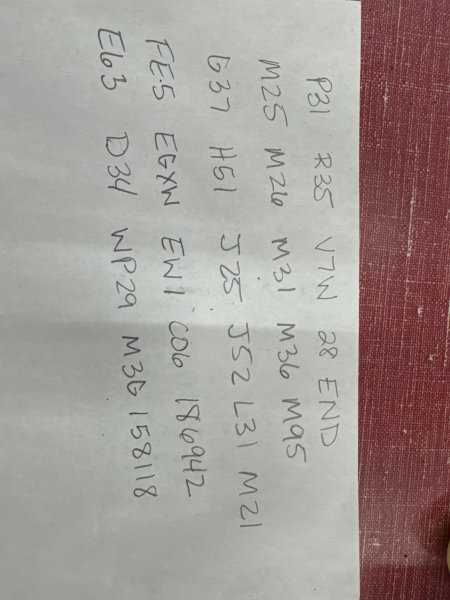 P31 R35 V7W 28 END
M25 M26 M31 M36 M95
G37 H51 J25 J52 L31 M21
FE5 EGXW EW1 C06 186942
E63 D34 WP29 M3G 158118